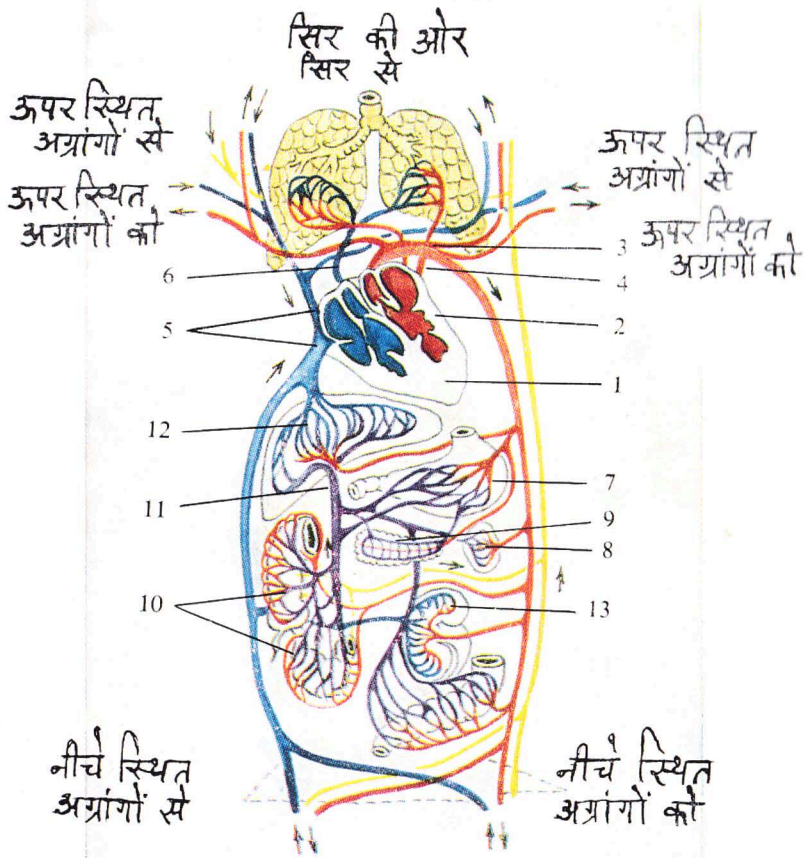 सिर की ओर
सिर से
ऊपर स्थित
अग्रांगों से
ऊपर स्थित
अग्रांगों को
ऊपर स्थित
अग्रांगों से
ऊपर स्थित
अग्रांगों को
3
4
6
2
5
1
12
7
11
9
8
10
13
नीचे स्थित
अग्रांगों से
नीचे स्थित
अग्रांगों को